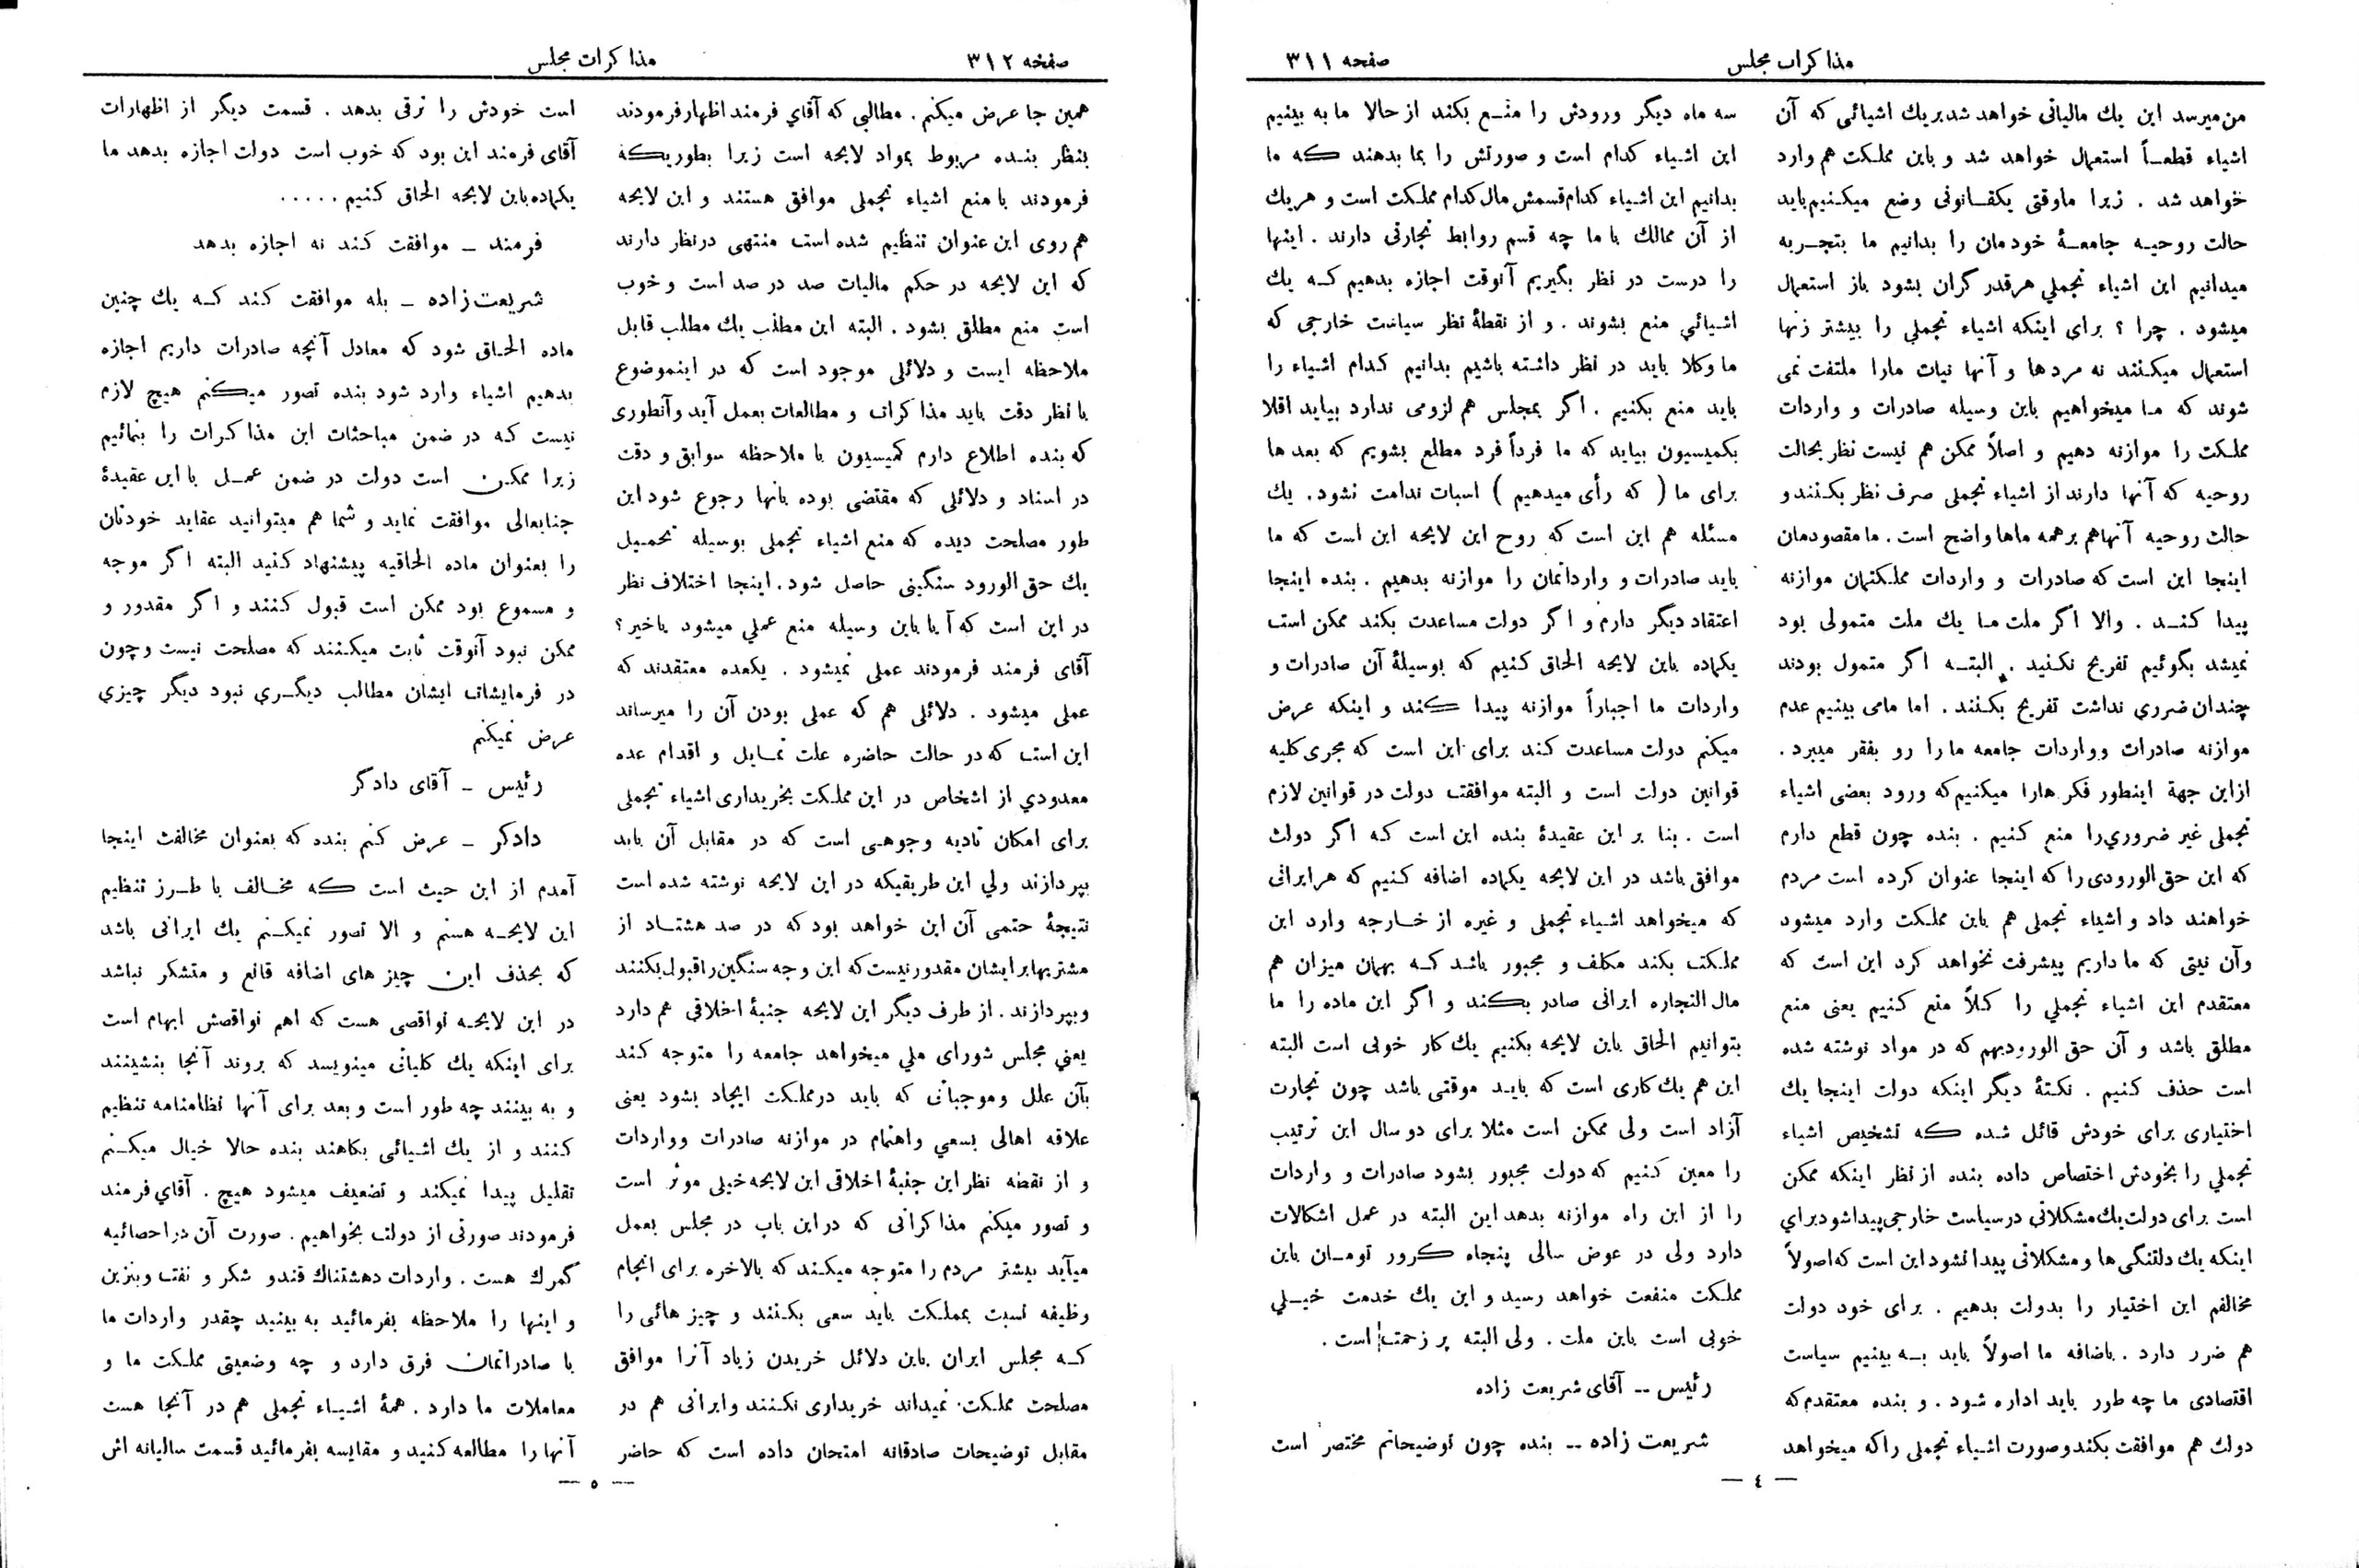 مذاکرات مجلس
صفحه ۳۱۱
من میرسد این یك مالیاتی خواهد شد بر یك اشیائی که آن
اشیاء قطعـاً استعمال خواهد شد و باین مملکت هم وارد
خواهد شد . زیرا ماوقتی یکقـانونی وضع میکنیم باید
حالت روحیـه جامعـهٔ خودمان را بدانیم ما بتجـربه
میدانیم این اشیاء تجملي هرقدر گران بشود باز استعمال
میشود . چرا ؟ برای اینکه اشیاء تجملي را بیشتر زنها
استعمال میکنند نه مردها و آنها نیات مارا ملتفت نمی
شوند که مـا میخواهیم باین وسیله صادرات و واردات
مملکت را موازنه دهیم و اصلاً ممکن هم نیست نظر بحالت
روحیه که آنها دارند از اشیاء تجملی صرف نظر بکنند و
حالت روحیه آنهاهم بر همه ماها واضح است . ما مقصودمان
اینجا این است که صادرات و واردات مملکتمان موازنه
پیدا کنـد . والا اگر ملت مـا یك ملت متمولی بود
نمیشد بگوئیم تفریح نکنید . البتـه اگر متمول بودند
چندان ضرري نداشت تفریح بکنند . اما مامی بینیم عدم
موازنه صادرات وواردات جامعه ما را رو بفقر میبرد .
از این جهة اینطور فکر هارا میکنیم که ورود بعضی اشیاء
تجملی غیر ضروري را منع کنیم . بنده چون قطع دارم
که این حق الورودی را که اینجا عنوان کرده است مردم
خواهند داد و اشیاء تجملی هم باین مملکت وارد میشود
وآن نیتی که ما داریم پیشرفت نخواهد کرد این است که
معتقدم این اشیاء تجملي را کلاً منع کنیم یعنی منع
مطلق باشد و آن حق الورودیهم که در مواد نوشته شده
است حذف کنیم . نکتهٔ دیگر اینکه دولت اینجا یك
اختیاری برای خودش قائل شده که تشخیص اشیاء
تجملي را بخودش اختصاص داده بنده از نظر اینکه ممکن
است برای دولت یك مشکلاتی در سیاست خارجی پیدا شود برای
اینکه یك دلتنگی ها و مشکلاتی پیدا نشود این است که اصولاً
مخالفم این اختیار را بدولت بدهیم . برای خود دولت
هم ضرر دارد . باضافه ما اصولاً باید بـه بینیم سیاست
اقتصادی ما چه طور باید اداره شود . و بنده معتقدم که
دولت هم موافقت بکند و صورت اشیاء تجملی را که میخواهد
سه ماه دیگر ورودش را منـع بکند از حالا ما به بینیم
این اشیاء کدام است و صورتش را بما بدهند که ما
بدانیم این اشیاء کدام قسمش مال کدام مملکت است و هر یك
از آن ممالك با ما چه قسم روابط تجارتی دارند . اینها
را درست در نظر بگیریم آنوقت اجازه بدهیم کـه یك
اشیائي منع بشوند . و از نقطهٔ نظر سیاست خارجی که
ما وکلا باید در نظر داشته باشیم بدانیم کدام اشیاء را
باید منع بکنیم . اگر بمجلس هم لزومی ندارد بیاید اقلا
بکمیسیون بیاید که ما فرداً فرد مطلع بشویم که بعد ها
برای ما ( که رأی میدهیم ) اسباب ندامت نشود . یك
مسئله هم این است که روح این لایحه این است که ما
باید صادرات و وارداتمان را موازنه بدهیم . بنده اینجا
اعتقاد دیگر دارم و اگر دولت مساعدت بکند ممکن است
یکماده باین لایحه الحاق کنیم که بوسیلهٔ آن صادرات و
واردات ما اجباراً موازنه پیدا کند و اینکه عرض
میکنم دولت مساعدت کند برای این است که مجری کلیه
قوانین دولت است و البته موافقت دولت در قوانین لازم
است . بنا بر این عقیدهٔ بنده این است کـه اگر دولت
موافق باشد در این لایحه یکماده اضافه کنیم که هر ایرانی
که میخواهد اشیاء تجملی و غیره از خـارجه وارد این
مملکت بکند مکلف و مجبور باشد کـه بهمان میزان هم
مال التجاره ایرانی صادر بکند و اگر این ماده را ما
بتوانیم الحاق باین لایحه بکنیم یك کار خوبی است البته
این هم یك کاری است که بایـد موقتی باشد چون تجارت
آزاد است ولی ممکن است مثلا برای دو سال این ترتیب
را معین کنیم که دولت مجبور بشود صادرات و واردات
را از این راه موازنه بدهد این البته در عمل اشکالات
دارد ولی در عوض سالی پنجاه کرور تومـان باین
مملکت منفعت خواهد رسید و این یك خدمت خیـلي
خوبی است باین ملت . ولی البته پر زحمت است .
رئیس -- آقای شریعت زاده
شریعت زاده -- بنده چون توضیحاتم مختصر است
— ٤ —
صفحه ۳۱۲
مذاکرات مجلس
همین جا عرض میکنم . مطالبی که آقاي فرمند اظهار فرمودند
بنظر بنـده مربوط بمواد لایحه است زیرا بطوریکه
فرمودند با منع اشیاء تجملی موافق هستند و این لایحه
هم روی این عنوان تنظیم شده است منتهی در نظر دارند
که این لایحه در حکم مالیات صد در صد است و خوب
است منع مطلق بشود . البته این مطلب یك مطلب قابل
ملاحظه ایست و دلائلی موجود است که در اینموضوع
با نظر دقت باید مذاکرات و مطالعات بعمل آید وآنطوری
که بنده اطلاع دارم کمیسیون با ملاحظه سوابق و دقت
در اسناد و دلائلی که مقتضی بوده بانها رجوع شود این
طور مصلحت دیده که منع اشیاء تجملی بوسیله تحمیل
یك حق الورود سنگینی حاصل شود . اینجا اختلاف نظر
در این است که آیا باین وسیله منع عملي میشود یاخیر ؟
آقای فرمند فرمودند عملی نمیشود . یکعده معتقدند که
عملی میشود . دلائلی هم که عملی بودن آن را میرساند
این است که در حالت حاضره علت تمـایل و اقدام عده
معدودي از اشخاص در این مملکت بخریداری اشیاء تجملی
برای امکان تادیه وجوهـی است که در مقابل آن باید
بپردازند ولي این طریقیکه در این لایحه نوشته شده است
نتیجهٔ حتمی آن این خواهد بود که در صد هشتـاد از
مشتریها برایشان مقدور نیست که این وجه سنگین را قبول بکنند
وبپردازند . از طرف دیگر این لایحه جنبهٔ اخلاقی هم دارد
یعني مجلس شورای ملي میخواهد جامعه را متوجه کند
بآن علل وموجباتی که باید در مملکت ایجاد بشود یعنی
علاقه اهالی بسعي واهتمام در موازنه صادرات وواردات
و از نقطه نظر این جنبهٔ اخلاقی این لایحه خیلی موثر است
و تصور میکنم مذاکراتی که در این باب در مجلس بعمل
میآید بیشتر مردم را متوجه میکند که بالاخره برای انجام
وظیفه نسبت بمملکت باید سعی بکنند و چیز هائی را
کـه مجلس ایران باین دلائل خریدن زیاد آنرا موافق
مصلحت مملکت نمیداند خریداری نکنند وایرانی هم در
مقابل توضیحات صادقانه امتحان داده است که حاضر
است خودش را ترقی بدهد . قسمت دیگر از اظهارات
آقای فرمند این بود که خوب است دولت اجازه بدهد ما
یکماده باین لایحه الحاق کنیم . . . . .
فرمند – موافقت کند نه اجازه بدهد
شریعت زاده – بله موافقت کند کـه یك چنین
ماده الحـاق شود که معادل آنچه صادرات داریم اجازه
بدهیم اشیاء وارد شود بنده تصور میکنم هیچ لازم
نیست کـه در ضمن مباحثات این مذاکرات را بنمائیم
زیرا ممکن است دولت در ضمن عمـل با این عقیدهٔ
جنابعالی موافقت نماید و شما هم میتوانید عقاید خودتان
را بعنوان ماده الحاقیه پیشنهاد کنید البته اگر موجه
و مسموع بود ممکن است قبول کنند و اگر مقدور و
ممکن نبود آنوقت ثابت میکنند که مصلحت نیست و چون
در فرمایشات ایشان مطالب دیگـری نبود دیگر چیزي
عرض نمیکنم
رئیس – آقای دادگر
دادگر – عرض کنم بنده که بعنوان مخالفت اینجا
آمدم از این حیث است که مخـالف با طـرز تنظیم
این لایحـه هستم و الا تصور نمیکـنم یك ایرانی باشد
که بحذف این چیز های اضافه قانع و متشکر نباشد
در این لایحـه نواقصی هست که اهم نواقصش ابهام است
برای اینکه یك کلیاتی مینویسد که بروند آنجا بنشینند
و به بینند چه طور است و بعد برای آنها نظامنامه تنظیم
کنند و از یك اشیائی بکاهند بنده حالا خیال میکـنم
تقلیل پیدا نمیکند و تضعیف میشود هیچ . آقاي فرمند
فرمودند صورتی از دولت بخواهیم . صورت آن در احصائیه
گمرك هست . واردات دهشتناك قند و شکر و نفت و بنزین
و اینها را ملاحظه بفرمائید به بینید چقدر واردات ما
با صادراتمان فرق دارد و چه وضعیتی مملکت ما و
معاملات ما دارد . همهٔ اشیـاء تجملی هم در آنجا هست
آنها را مطالعه کنید و مقایسه بفرمائید قسمت سالیانه اش
— ٥ —